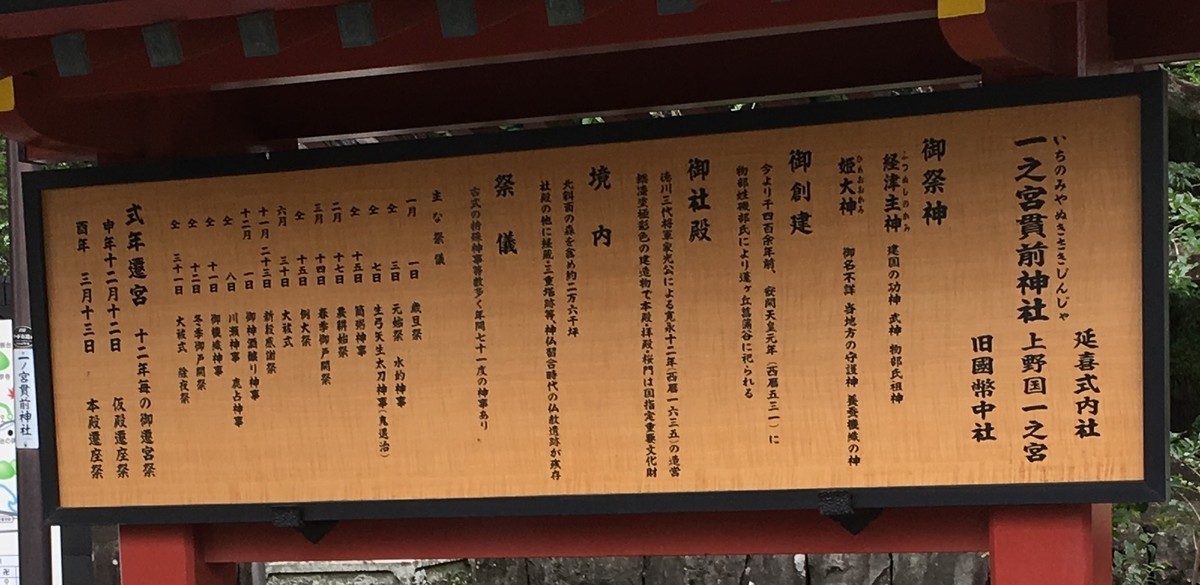 延喜式内社
いちのみやぬきさきじんじゃ
一之宮貫前神社 上野国一之宮
旧國幣中社
御祭神
ふつぬしのかみ
経津主神 建国の功神 武神 物部氏の祖神
ひめおおかみ
姫大神 御名不詳 当地方の守護神 養蚕機織の神
御創建
今より千四百余年前、安閑天皇元年(西暦五三一)に
物部姓磯部氏により蓬ヶ丘菖蒲谷に祀られる
御社殿
徳川三代将軍家光公による寛永十二年(西暦一六三五)の造営
総漆塗極彩色の建造物で本殿・拝殿・楼門は国指定重要文化財
境内
北斜面の森を含め約二万六千坪
社殿の他に経蔵・三重塔跡等、神仏習合時代の仏教遺跡が残存
祭儀
古式の特殊神事等数多く年間七十一度の神事あり
主な祭儀
一月 一日 歳旦祭
仝 三日 元始祭 水的神事
仝 七日 生弓矢生太刀神事(鬼退治)
仝 十五日 筒粥神事
二月 十七日 農耕始祭
三月 十四日 春季御戸開祭
仝 十五日 例大祭
六月 三十日 大祓式
十一月 二十三日 新穀感謝祭
十二月 一日 御神酒醸り神事
仝 八日 川瀬神事 鹿占神事
仝 十一日 御機織神事
仝 十二日 冬季御戸開祭
仝 三十一日 大祓式 除夜祭
式年遷宮 十二年毎の御遷宮祭
申年十二月十二日 仮殿遷座祭
酉年 三月十三日 本殿遷座祭
一ノ宮貫前神社